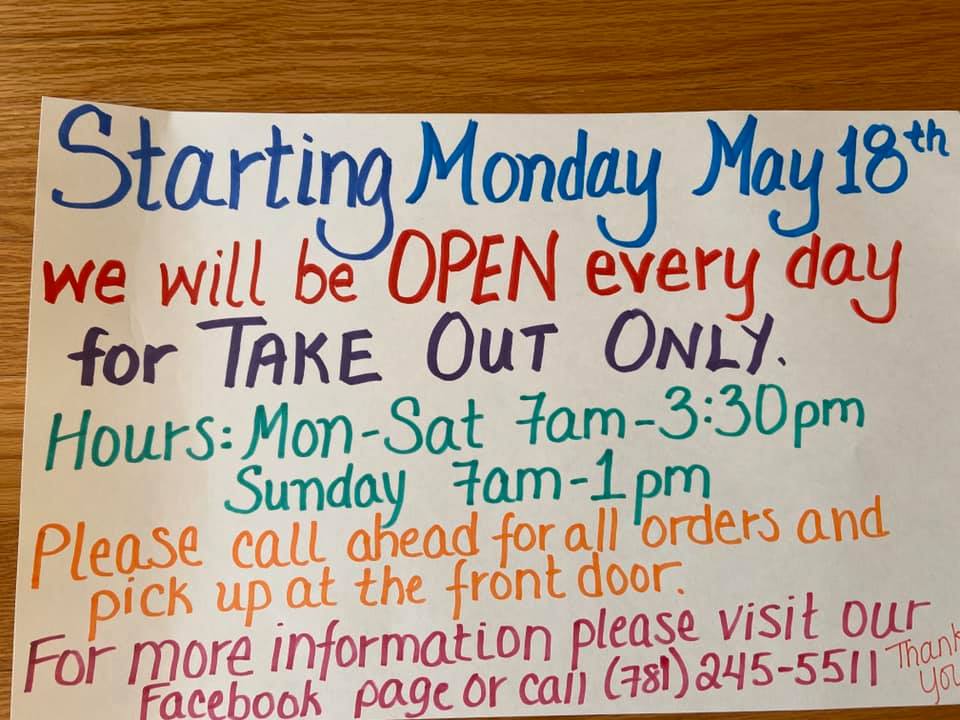 Starting Monday May 18th
we will be OPEN every day
for TAKE OUT ONLY.
Hours: Mon-Sat 7am-3:30pm
Sunday 7am-1pm
Please call ahead for all orders and
pick up at the front door.
For more information please visit our
Facebook page or call (781) 245-5511
Thank
you